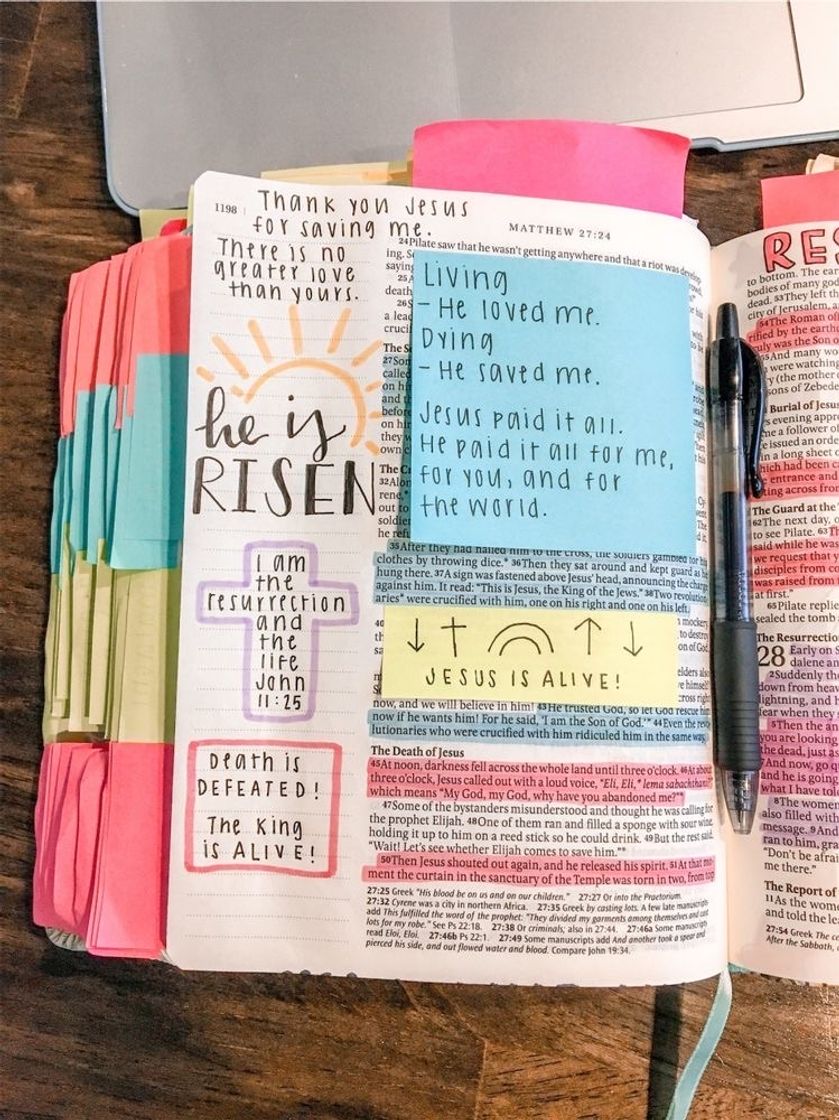 Thank you Jesus
for saving me.
There is no
greater love
than yours.
he is
RISEN
I am
the
resurrection
and
the
life
John
11:25
Death is
DEFEATED!
The King
is ALIVE!
1198
MATTHEW 27:24
24Pilate saw that he wasn't getting anywhere and that a riot was
Living
- He loved me.
Dying
- He saved me.
Jesus paid it all.
He paid it all for me,
for you, and for
the world.
35After they had nailed him to the cross, the soldiers gambled for his
clothes by throwing dice.* 36Then they sat around and kept guard as he
hung there. 37A sign was fastened above Jesus' head, announcing the charge
against him. It read: "This is Jesus, the King of the Jews." 38Two revolution-
aries* were crucified with him, one on his right and one on his left.
JESUS IS ALIVE!
now, and we will believe in him! 43He trusted God, so let God rescue him
now if he wants him! For he said, 'I am the Son of God.'" 44Even the revo-
lutionaries who were crucified with him ridiculed him in the same way.
The Death of Jesus
45At noon, darkness fell across the whole land until three o'clock. 46At about
three o'clock, Jesus called out with a loud voice, "Eli, Eli,* lema sabachthani?"
which means "My God, my God, why have you abandoned me?"*
47Some of the bystanders misunderstood and thought he was calling for
the prophet Elijah. 48One of them ran and filled a sponge with sour wine,
holding it up to him on a reed stick so he could drink. 49But the rest said,
"Wait! Let's see whether Elijah comes to save him."*
50Then Jesus shouted out again, and he released his spirit. 51At that mo-
ment the curtain in the sanctuary of the Temple was torn in two, from top
27:25 Greek "His blood be on us and on our children." 27:27 Or into the Praetorium.
27:32 Cyrene was a city in northern Africa. 27:35 Greek by casting lots. A few late manuscripts
add This fulfilled the word of the prophet: "They divided my garments among themselves and cast
lots for my robe." See Ps 22:18. 27:38 Or criminals; also in 27:44. 27:46a Some manuscripts
read Eloi, Eloi. 27:46b Ps 22:1. 27:49 Some manuscripts add And another took a spear and
pierced his side, and out flowed water and blood. Compare John 19:34.
RES
to bottom. The ear
bodies of many god
dead. 53They left th
city of Jerusalem, a
54The Roman off
rified by the earth
ruly was the Son o
55And many wo
were watching
ry (the mother
sons of Zebed
Burial of Jesus
The Guard at the
62The next day, o
to see Pilate. 63Th
said while he was
we request that y
disciples from co
was raised from
at first."
65Pilate replie
sealed the tomb
The Resurrectio
28 Early on S
dalene an
2Suddenly the
down from heav
lightning, and h
fear when they s
5Then the an
you are looking
the dead, just as
And now, go q
and he is going
what I have told
8The women
also filled with
message. 9And
ran to him, gra
"Don't be afrai
me there."
The Report of
11As the wome
and told the lea
27:54 Greek The ce
After the Sabbath,